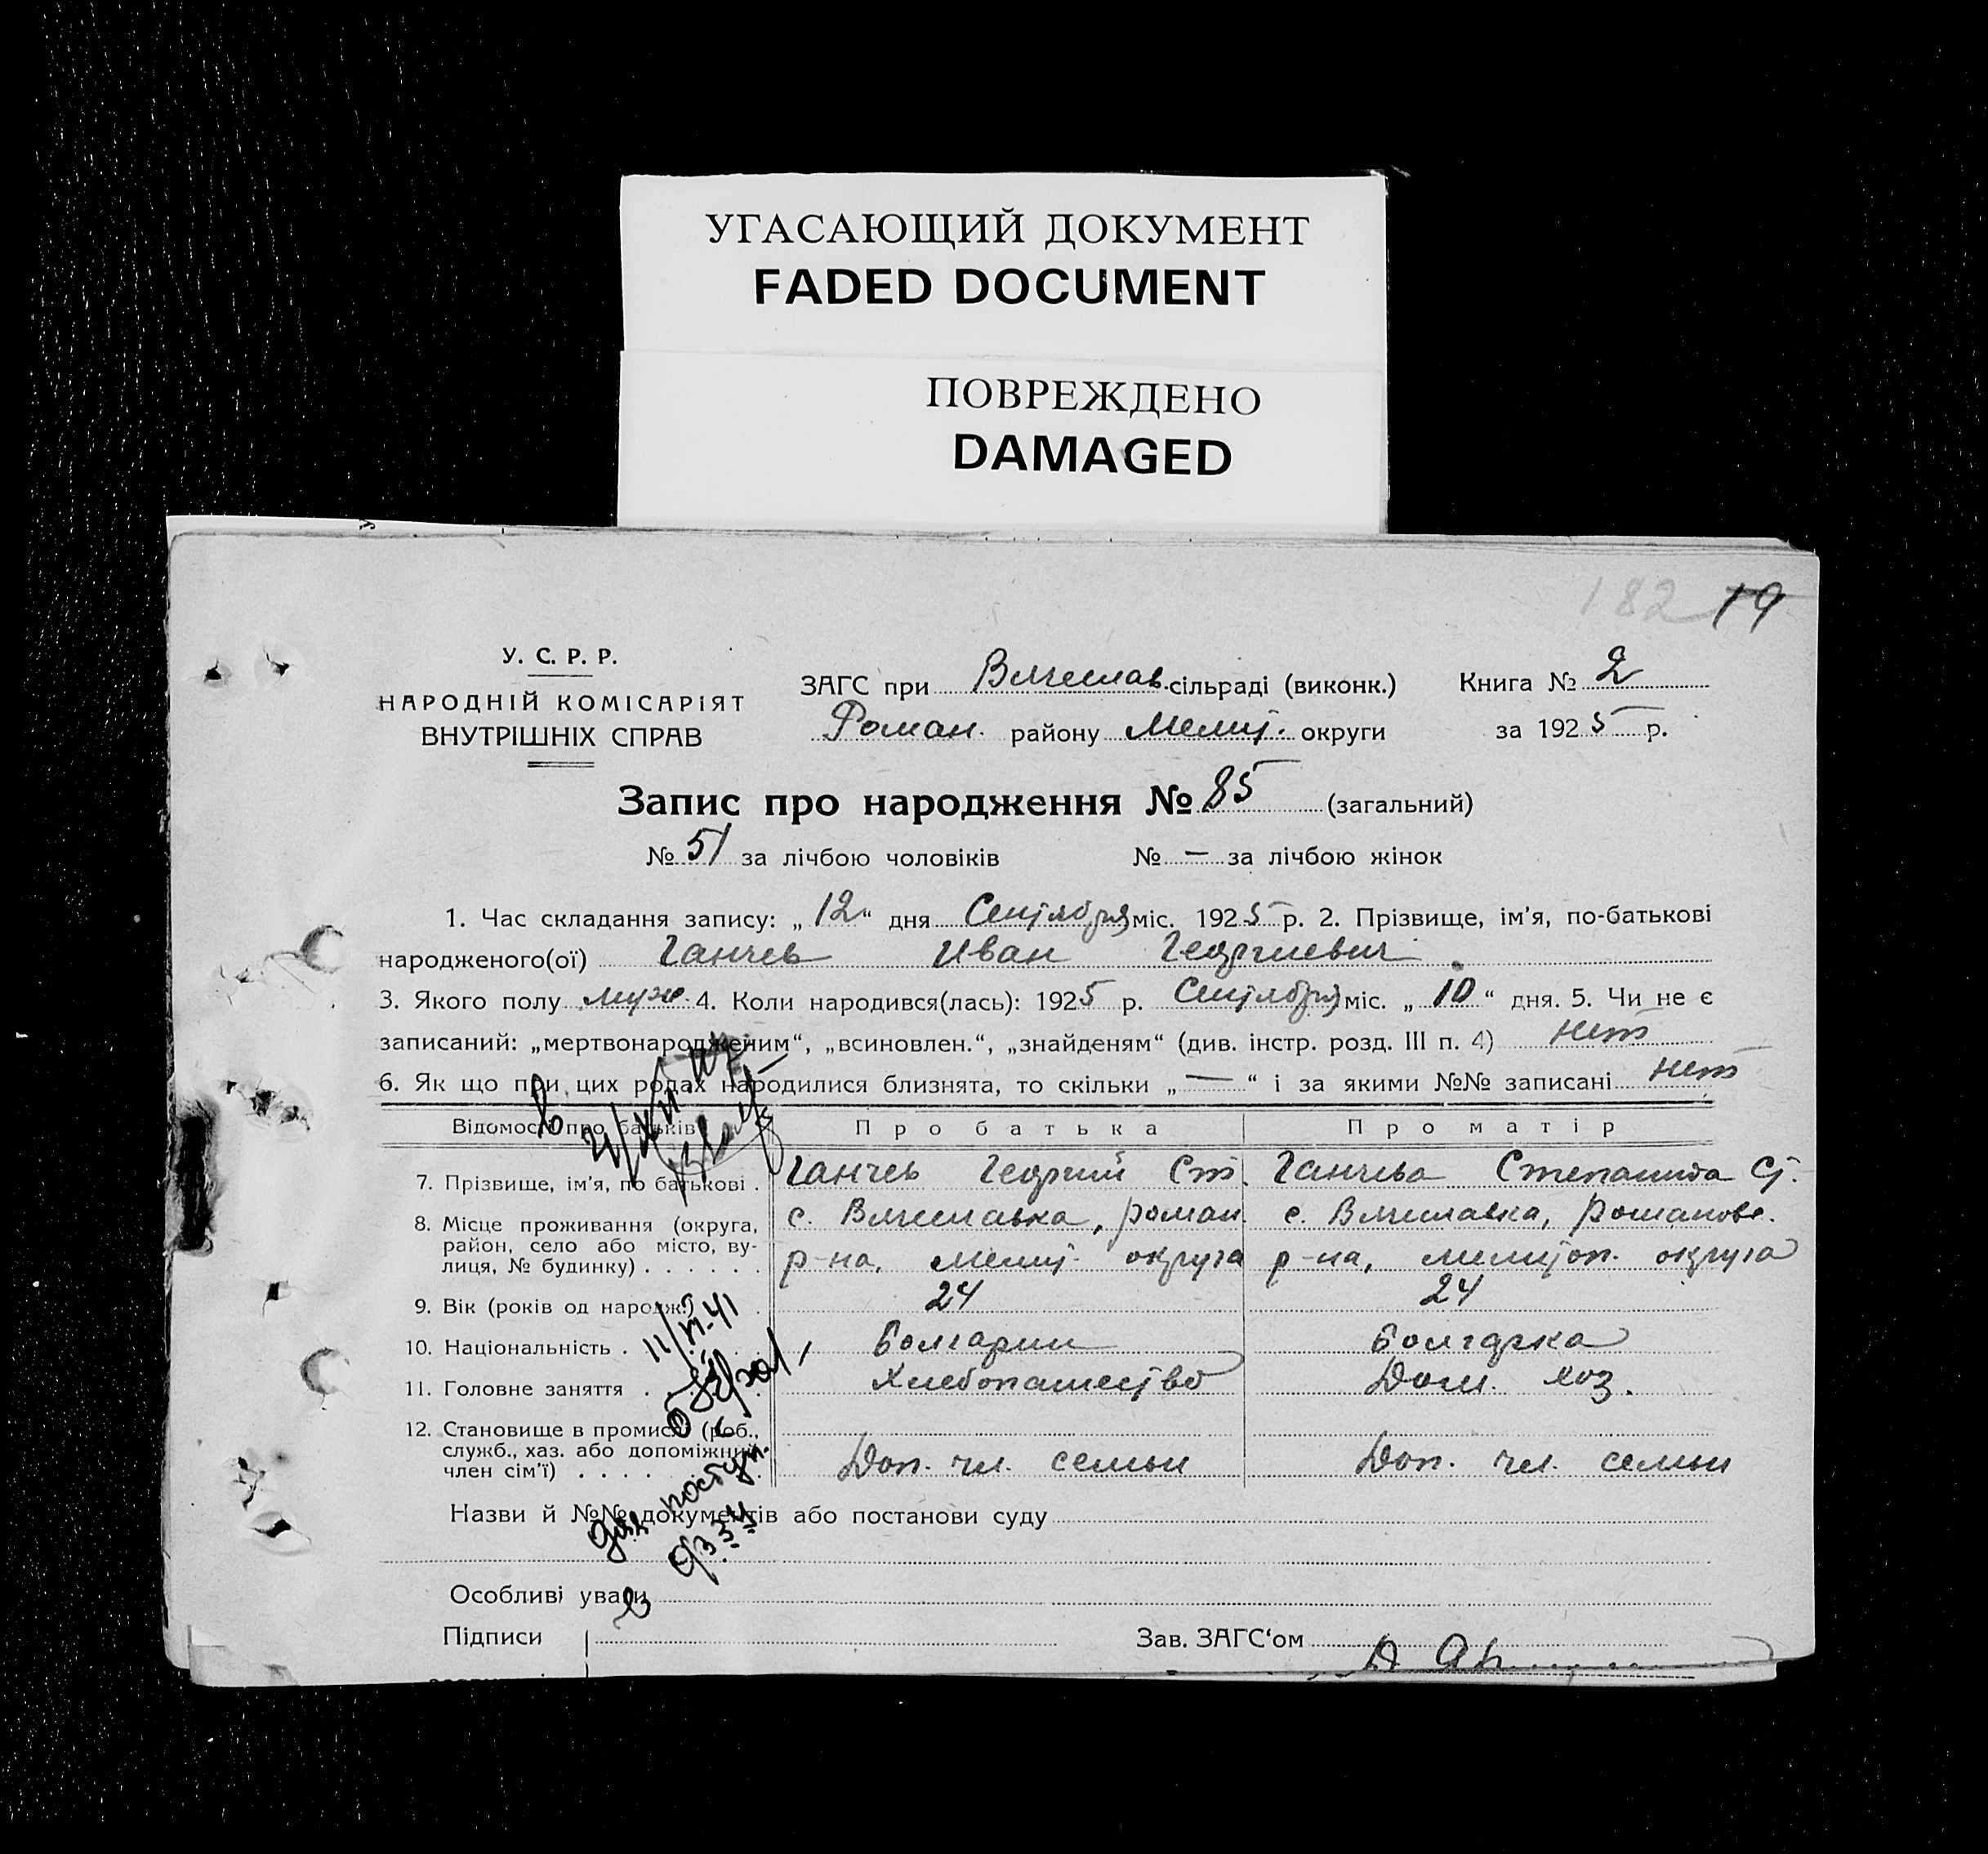 УГАСАЮЩИЙ ДОКУМЕНТ
FADED DOCUMENT
ПОВРЕЖДЕНО
DAMAGED
182 19
У. С. Р. Р.
НАРОДНІЙ КОМІСАРІЯТ
ВНУТРІШНІХ СПРАВ
ЗАГС при Вячеслав. сільраді (виконк.) Книга № 2
Роман. району Мелит. округи за 1925 р.
Запис про народження № 85 (загальний)
№ 51 за лічбою чоловіків № — за лічбою жінок
1. Час складання запису: „12“ дня Сентября міс. 1925 р. 2. Прізвище, ім'я, по-батькові
народженого(ої) Ганчев Иван Георгиевич.
3. Якого полу муж. 4. Коли народився(лась): 1925 р. Сентября міс. „10“ дня. 5. Чи не є
записаний: „мертвонародженим“, „всиновлен.“, „знайденям“ (див. інстр. розд. III п. 4) нет
6. Як що при цих родах народилися близнята, то скільки „—“ і за якими №№ записані нет
Відомості про батьків Про батька Про матір
7. Прізвище, ім'я, по батькові . Ганчев Георгий Ст. Ганчева Степанида Ст.
8. Місце проживання (округа, с. Вячеславка, роман. с. Вячеславка, Романовс.
район, село або місто, ву-
лиця, № будинку) . . . . . . р-на, мелит. округа р-на, мелитоп. округа
9. Вік (років од народж.) 24 24
10. Національність . Болгарин Болгарка
11. Головне заняття . Хлебопашество Дом. хоз.
12. Становище в промислі (роб.,
служб., хаз. або допоміжний
член сім'ї) . . . . Доп. чл. семьи Доп. чл. семьи
11/VI-41
для поступ.
Назви й №№ документів або постанови суду
Особливі уваги
Підписи Зав. ЗАГС‘ом